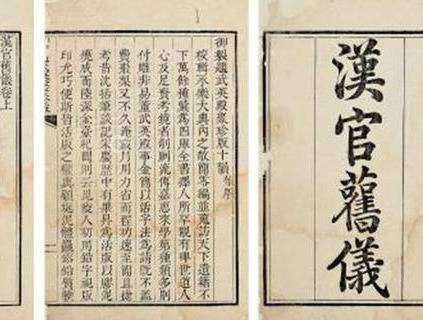 漢官舊儀
御製題武英殿聚珍版十韻有序
校輯永樂大典內之散簡零編並蒐訪天下遺籍不
下萬餘種彙為四庫全書擇人所罕覯有裨世道人
心及足資考鏡者剞劂流傳嘉惠來學第種類多則
付雕非易董武英殿事金簡以活字法為請既不濫
費棗梨又不久淹歲月用力省而程功速至簡且捷
考昔沈括筆談記宋慶曆中有畢昇為活版以膠泥
燒成而陸深金臺紀聞則云毘陵人初用鉛字視版
印尤巧便斯皆活版之權輿顧埏泥體麤鎔鉛質軟
漢官舊儀卷上